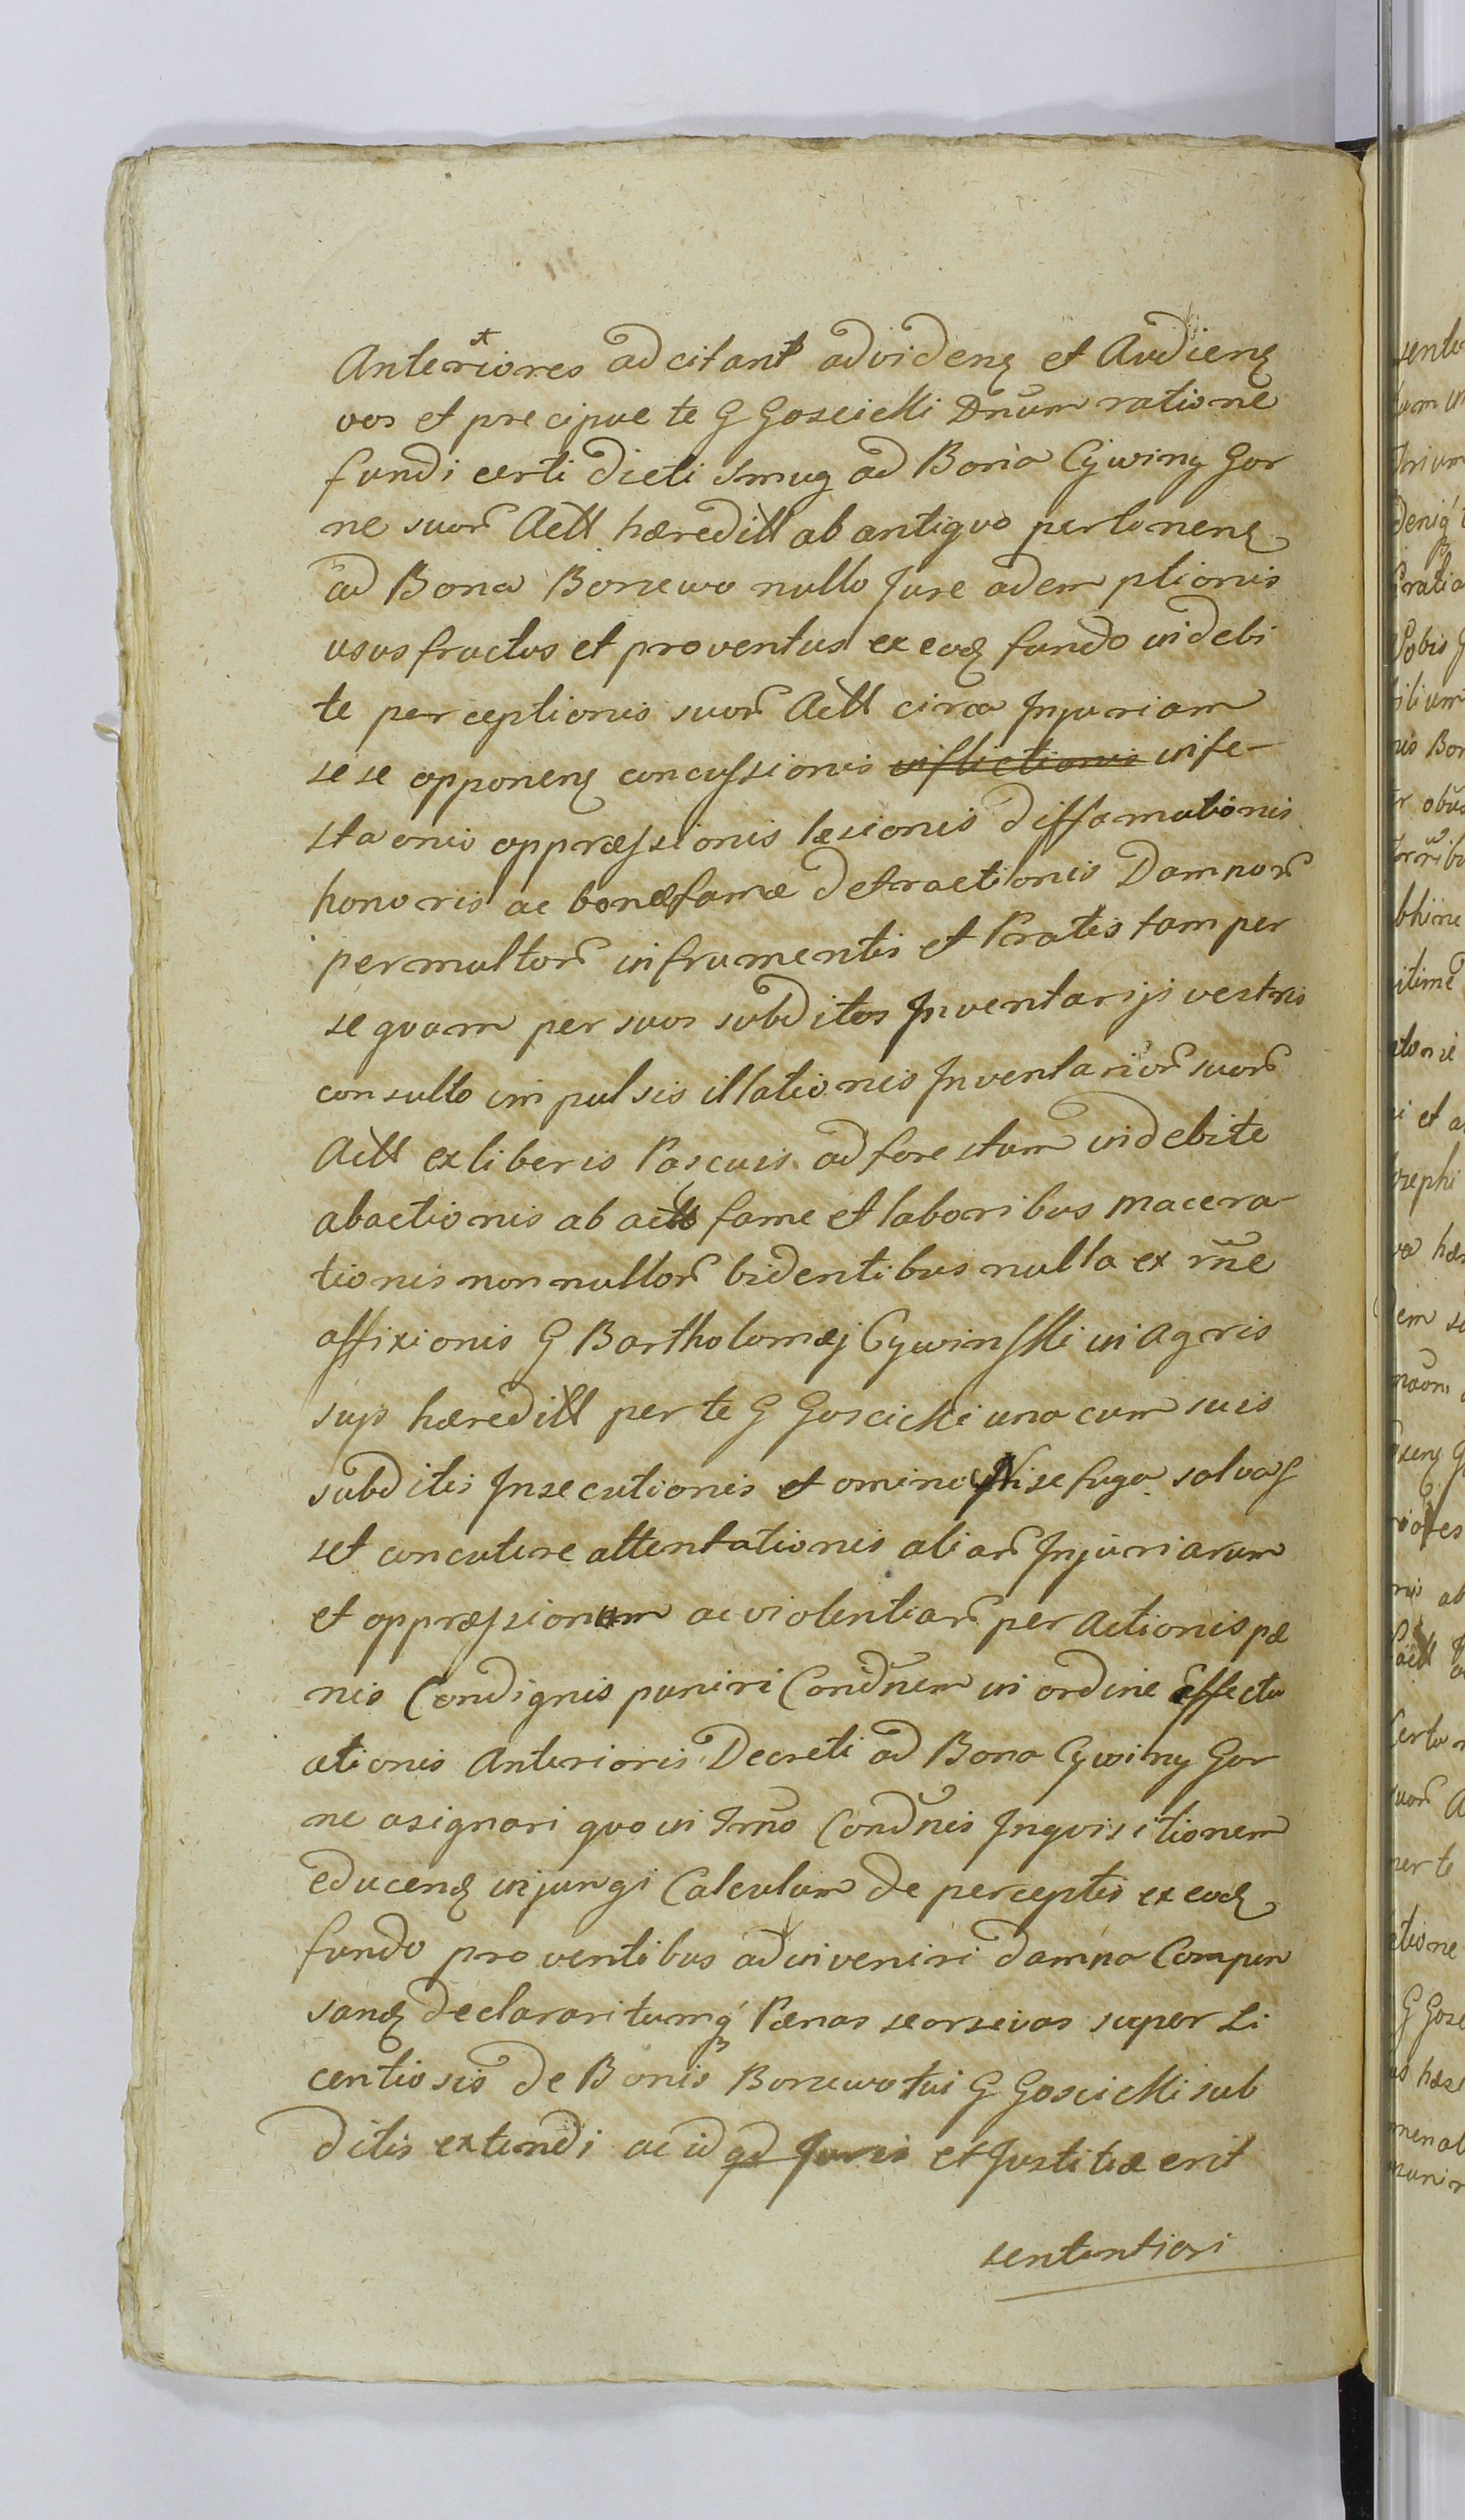 Anteriores adcitant ad videnꝫ et Audienꝫ
vos et precipue te G Goscicki Dnum ratione
fundi certi dicti Smug ad Bona Cywiny Gor
ne suor Actt hæreditt ab antiquo pertinenꝫ
ad Bona Borzewo nullo Jure ademptionis
ususfructus et proventus ex eodꝫ fundo indebi
te perceptionis suor Actt circa Injuriam
sese opponenꝫ concussionis inflictionis infe-
staonis oppræssionis læsionis diffamationis
honoris ac bonæ famæ detractionis Damnor
permultor in frumentis et Pratis tam per
se quam per suos subditos Inventarijs vestris
consulto impulsis illationis Inventarior suor
Actt ex liberis Pascuis ad forestam indebite
abactionis ab actt fame et laboribus macera
tionis nonnullor bidentibus nulla ex rñe
affixionis G Bartholomæj Cywinski in agris
sujs hæreditt per te G Goscicki una cum suis
subditis Insecutionis et omine Ni se fuga salvas
set concutere attentationis aliar Injuriarum
et oppræssionum ac violentiar per actionis pæ
nis Condignis puniri Condnem in ordine Effectu
ationis Anterioris Decreti ad Bona Cywiny Gor
ne asignari quo in Trño Condnis Inquisitionem
educendꝫ injungi Calculum de perceptis ex eodꝫ
fundo proventibus adinveniri damna Compen
sandꝫ declarari tumq́ Pænas seorsivas super Li
centiosis de Bonis Borzewo tui G Goscicki sub
ditis extendi ac id qd Juris et Justitiæ erit
sententiari